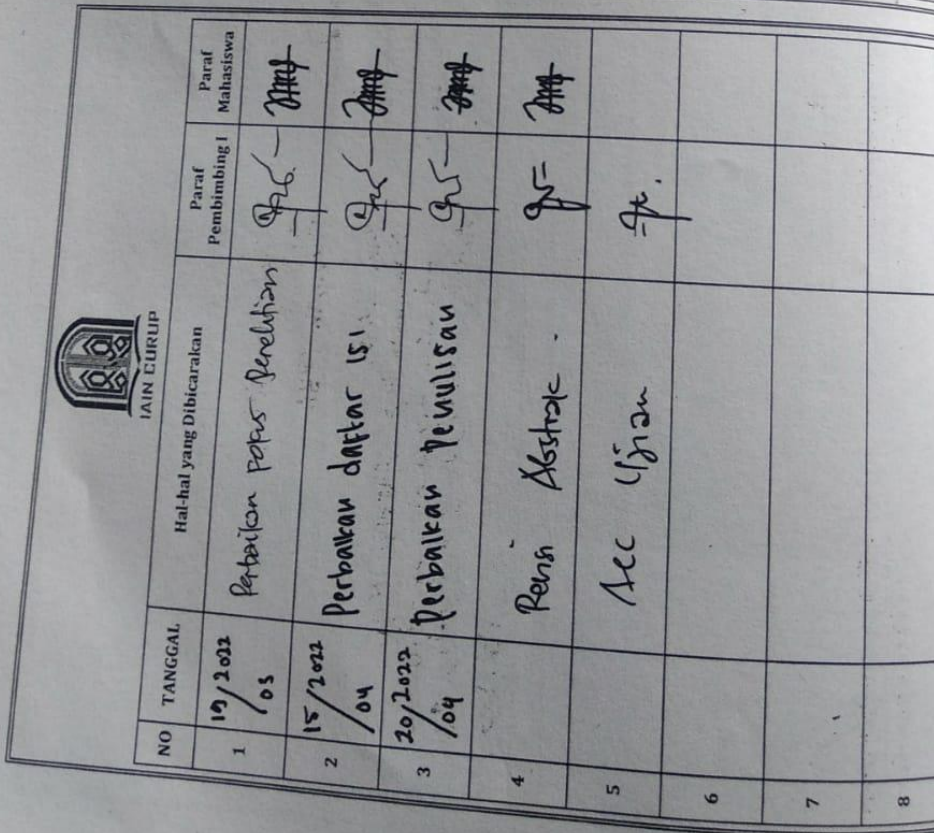 IAIN CURUP
NO TANGGAL Hal-hal yang Dibicarakan Paraf Pembimbing I Paraf Mahasiswa
1 19/2022 /03 Perbaikan Penelitian
2 15/2022 /04 Perbaikan daftar isi
3 20/2022 /04 Perbaikan Penulisan
4 Revisi Abstrak.
5 Acc Ujian
6
7
8